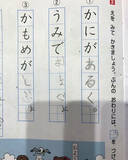 えを みて かきましょう。ぶんの おわりには、
を つけ
① かにが あるく。
② うみで
③ かもめが